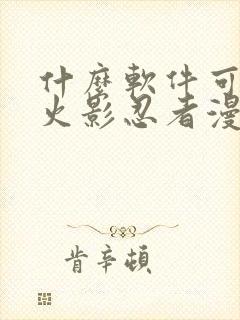 什麼軟件可
火影忍者漫
肯辛頓